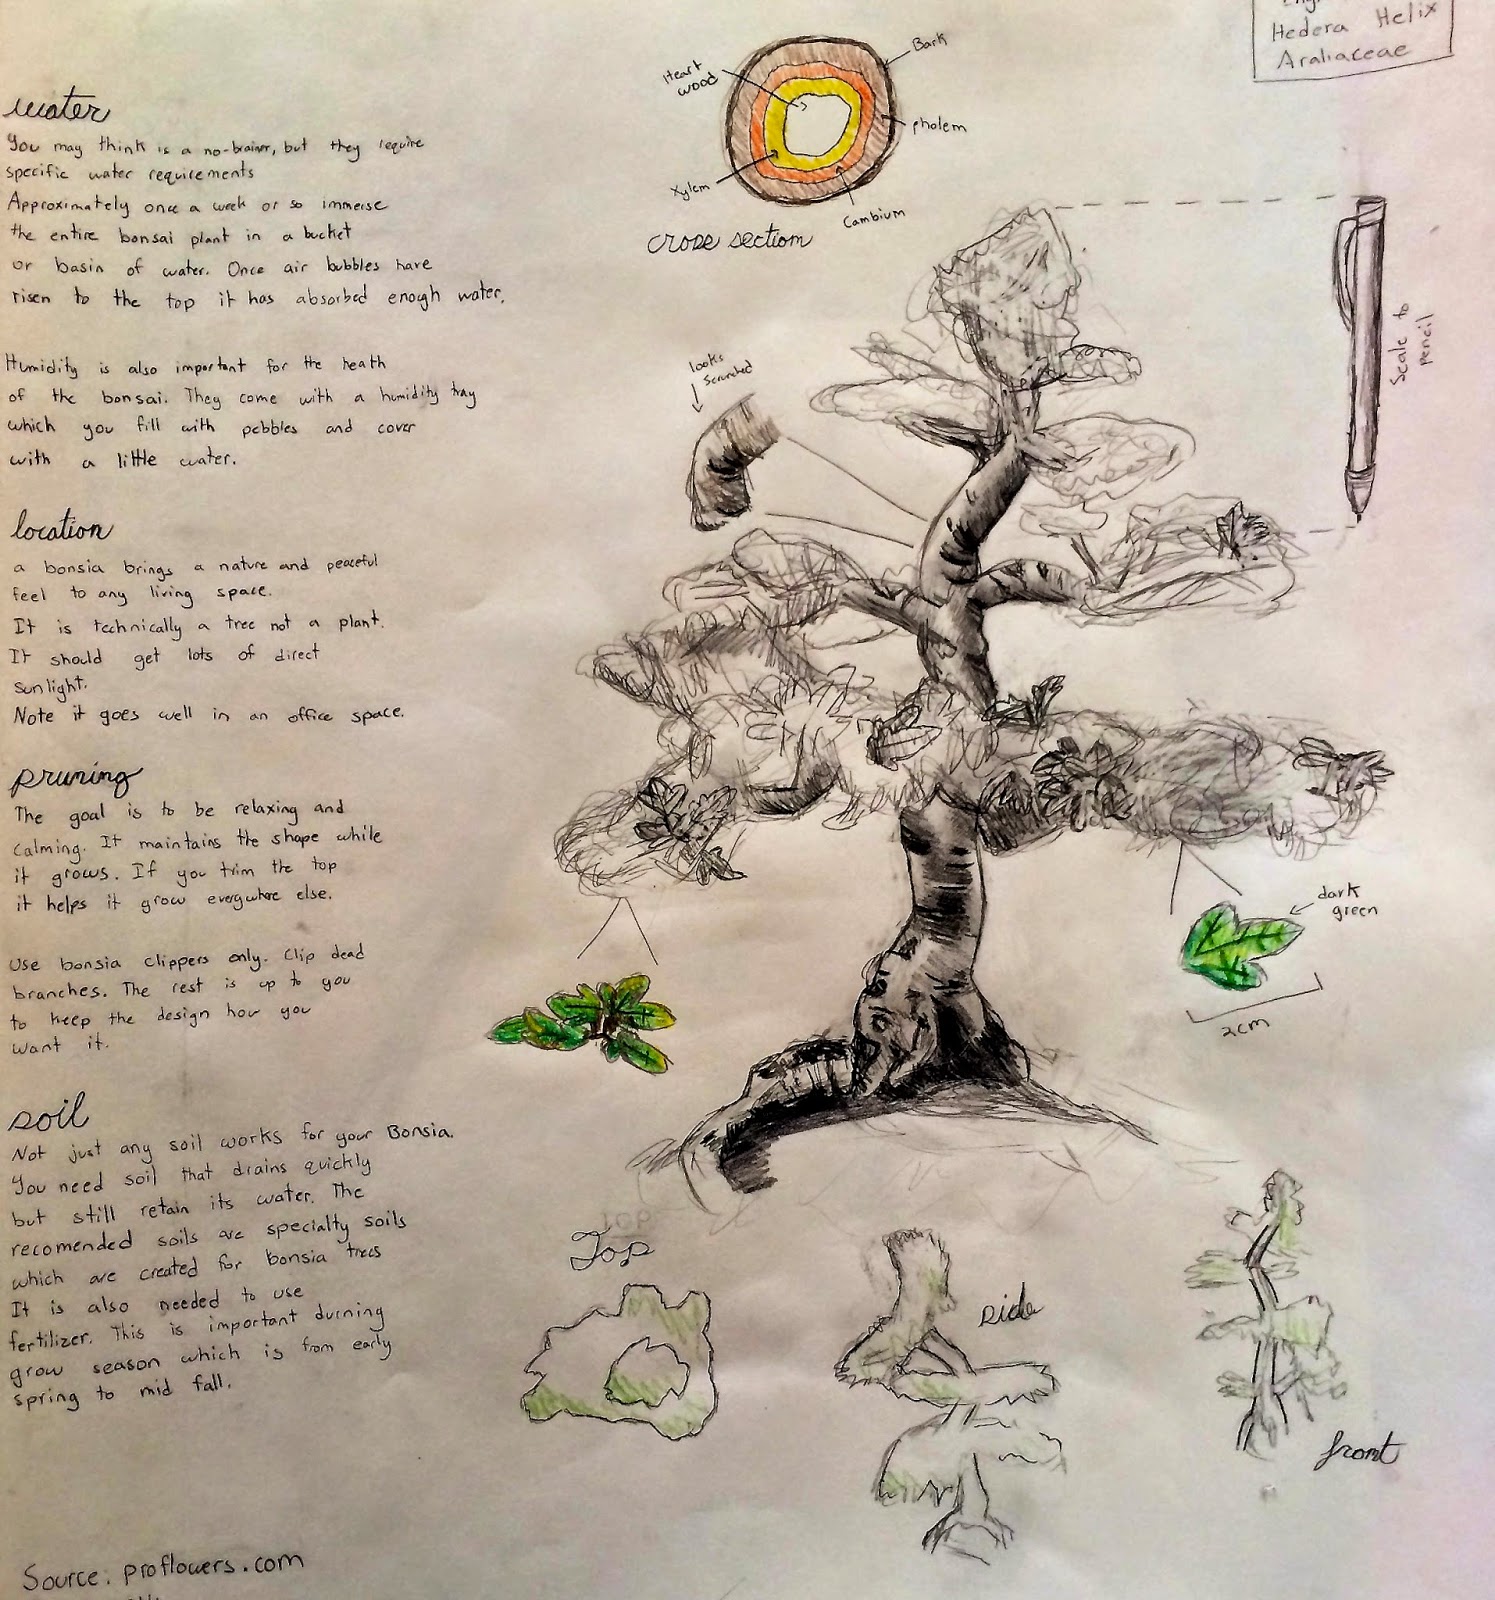 Hedera Helix
Araliaceae
water
You may think is a no-brainer, but they require
specific water requirements
Approximately once a week or so immerse
the entire bonsai plant in a bucket
or basin of water. Once air bubbles have
risen to the top it has absorbed enough water.
Humidity is also important for the heath
of the bonsai. They come with a humidity tray
which you fill with pebbles and cover
with a little water.
location
a bonsia brings a nature and peaceful
feel to any living space.
It is technically a tree not a plant.
It should get lots of direct
sunlight.
Note it goes well in an office space.
pruning
The goal is to be relaxing and
calming. It maintains the shape while
it grows. If you trim the top
it helps it grow everywhere else.
Use bonsia clippers only. Clip dead
branches. The rest is up to you
to keep the design how you
want it.
soil
Not just any soil works for your Bonsia.
You need soil that drains quickly
but still retain its water. The
recomended soils are specialty soils
which are created for bonsia trees
It is also needed to use
fertilizer. This is important durning
grow season which is from early
spring to mid fall.
Source: proflowers.com
Heart
wood
Bark
pholem
Xylem
Cambium
cross section
looks
scrunched
Scale to
pencil
dark
green
2cm
Top
Top
side
front